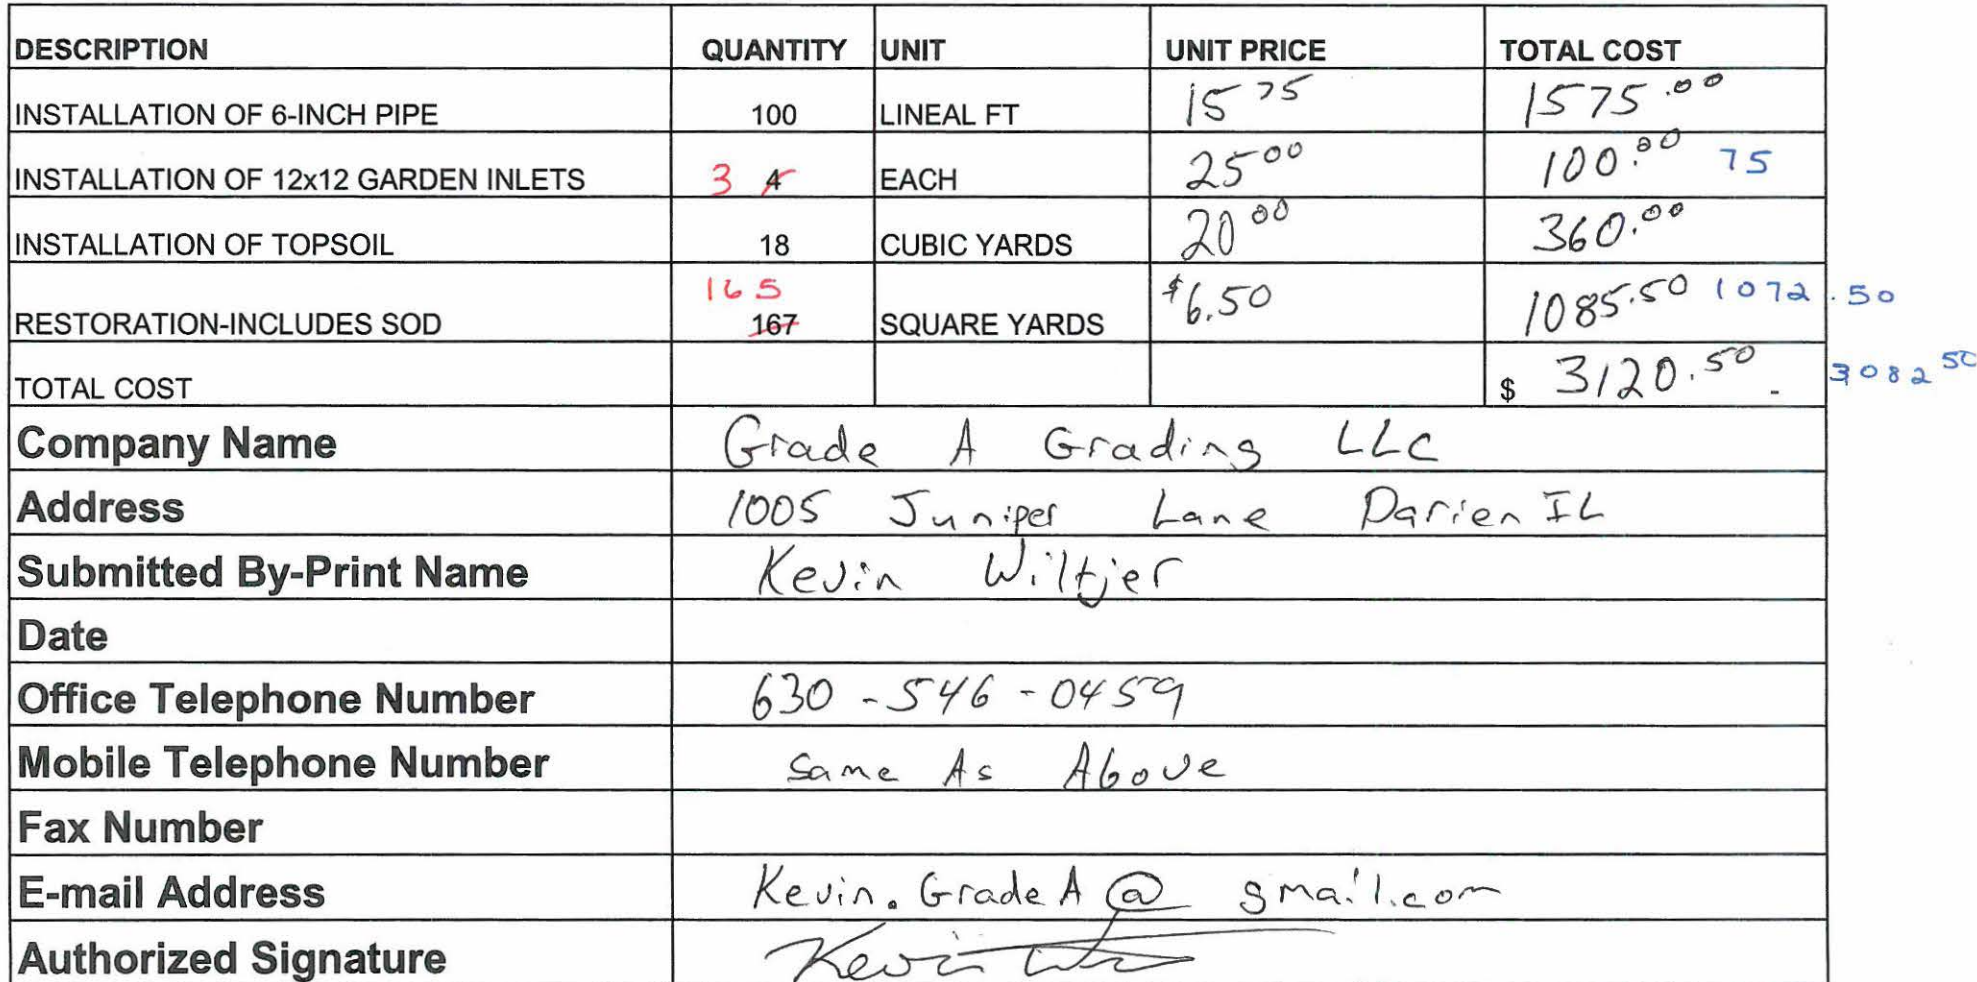 DESCRIPTION QUANTITY UNIT UNIT PRICE TOTAL COST
INSTALLATION OF 6-INCH PIPE 100 LINEAL FT 15 75 1575.00
INSTALLATION OF 12x12 GARDEN INLETS 3 4 EACH 25 00 100.00 75
INSTALLATION OF TOPSOIL 18 CUBIC YARDS 20 00 360.00
165
RESTORATION-INCLUDES SOD 167 SQUARE YARDS $6.50 1085.50 1072.50
TOTAL COST $ 3120.50 3082 50
Company Name Grade A Grading LLC
Address 1005 Juniper Lane Darien IL
Submitted By-Print Name Kevin Wiltjer
Date
Office Telephone Number 630-546-0459
Mobile Telephone Number Same As Above
Fax Number
E-mail Address Kevin.GradeA@gmail.com
Authorized Signature Kevin